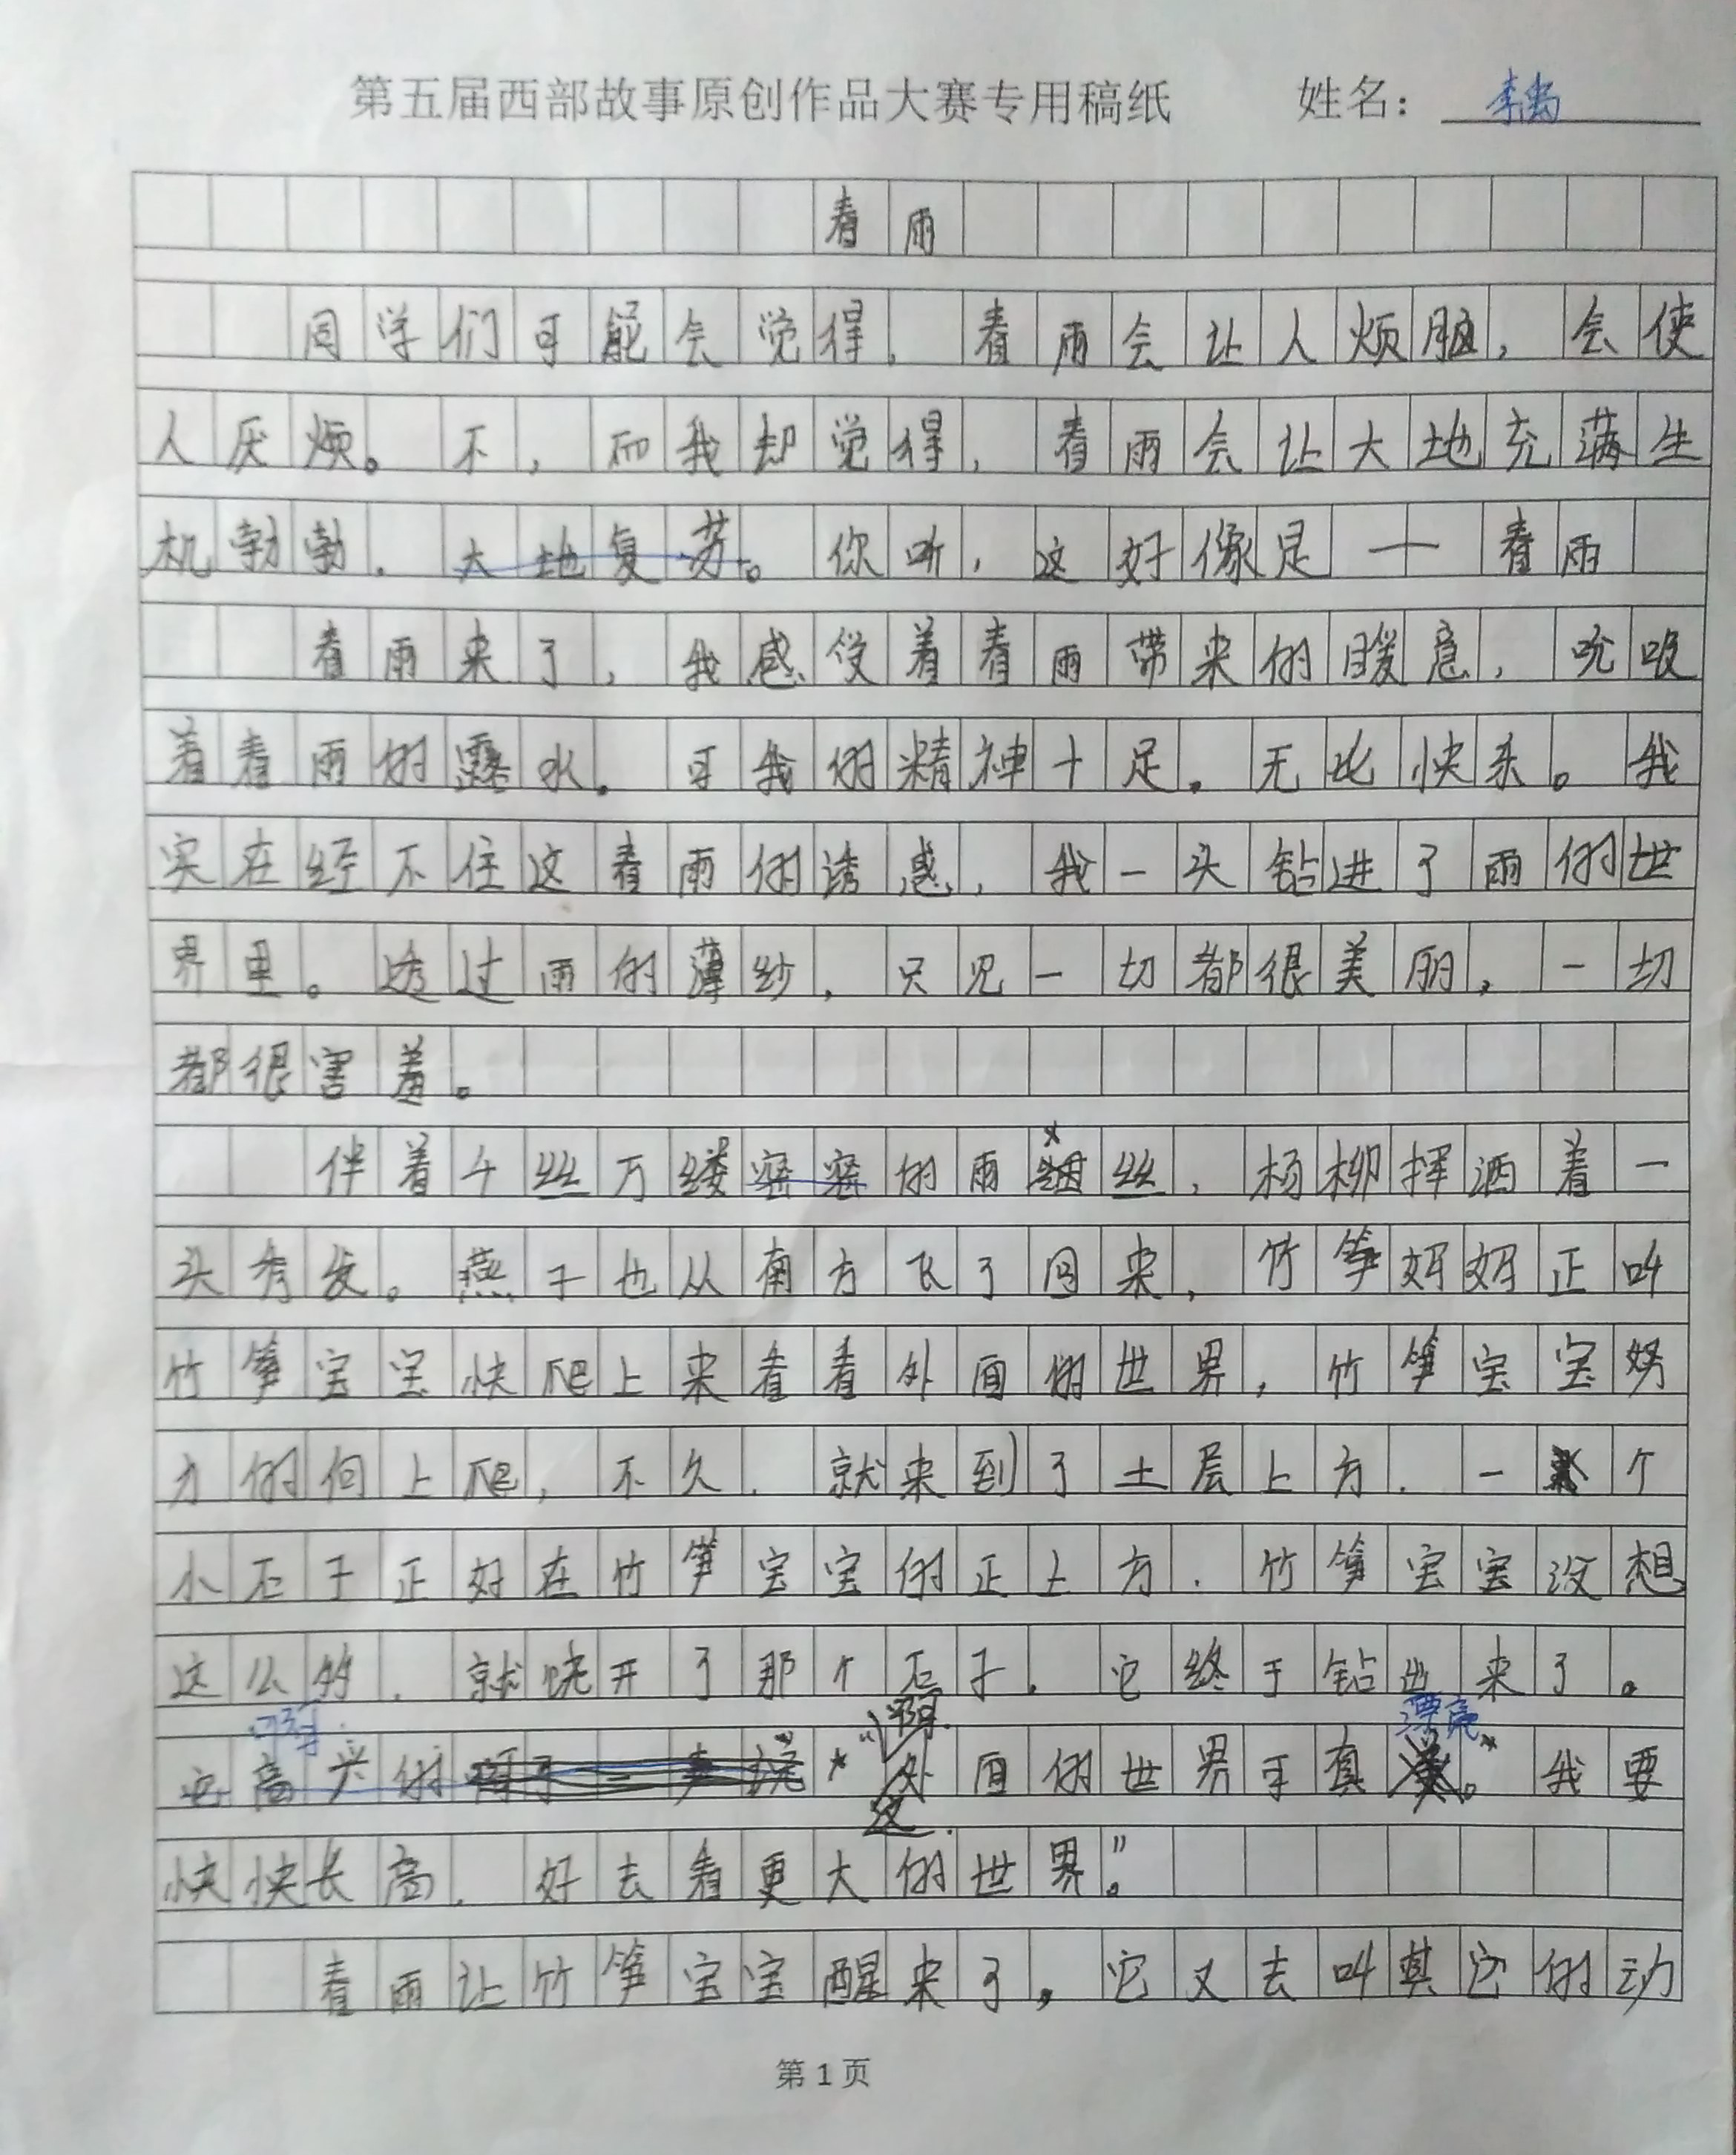 第五届西部故事原创作品大赛专用稿纸 姓名：
春雨
同学们可能会觉得，春雨会让人烦脑，会使
人厌烦。不，而我却觉得，春雨会让大地充满生
机勃勃，大地复苏。你听，这好像是——春雨
春雨来了，我感受着春雨带来的暖意，吮吸
着春雨的露水。可我的精神十足，无比快乐。我
实在经不住这春雨的诱惑，我一头钻进了雨的世
界里。透过雨的薄纱，只见一切都很美丽，一切
都很害羞。
伴着千丝万缕密密的雨丝，杨柳挥洒着一
头秀发。燕子也从南方飞了回来，竹笋妈妈正叫
竹笋宝宝快爬上来看看外面的世界，竹笋宝宝努
力的向上爬，不久，就来到了土层上方，一个
小石子正好在竹笋宝宝的正上方，竹笋宝宝没想
这么的，就饶开了那个石子，它终于钻出来了。
它高兴的“啊，这外面的世界可真漂亮。我要
快快长高，好去看更大的世界。”
春雨让竹笋宝宝醒来了，它又去叫其它的动
第1页